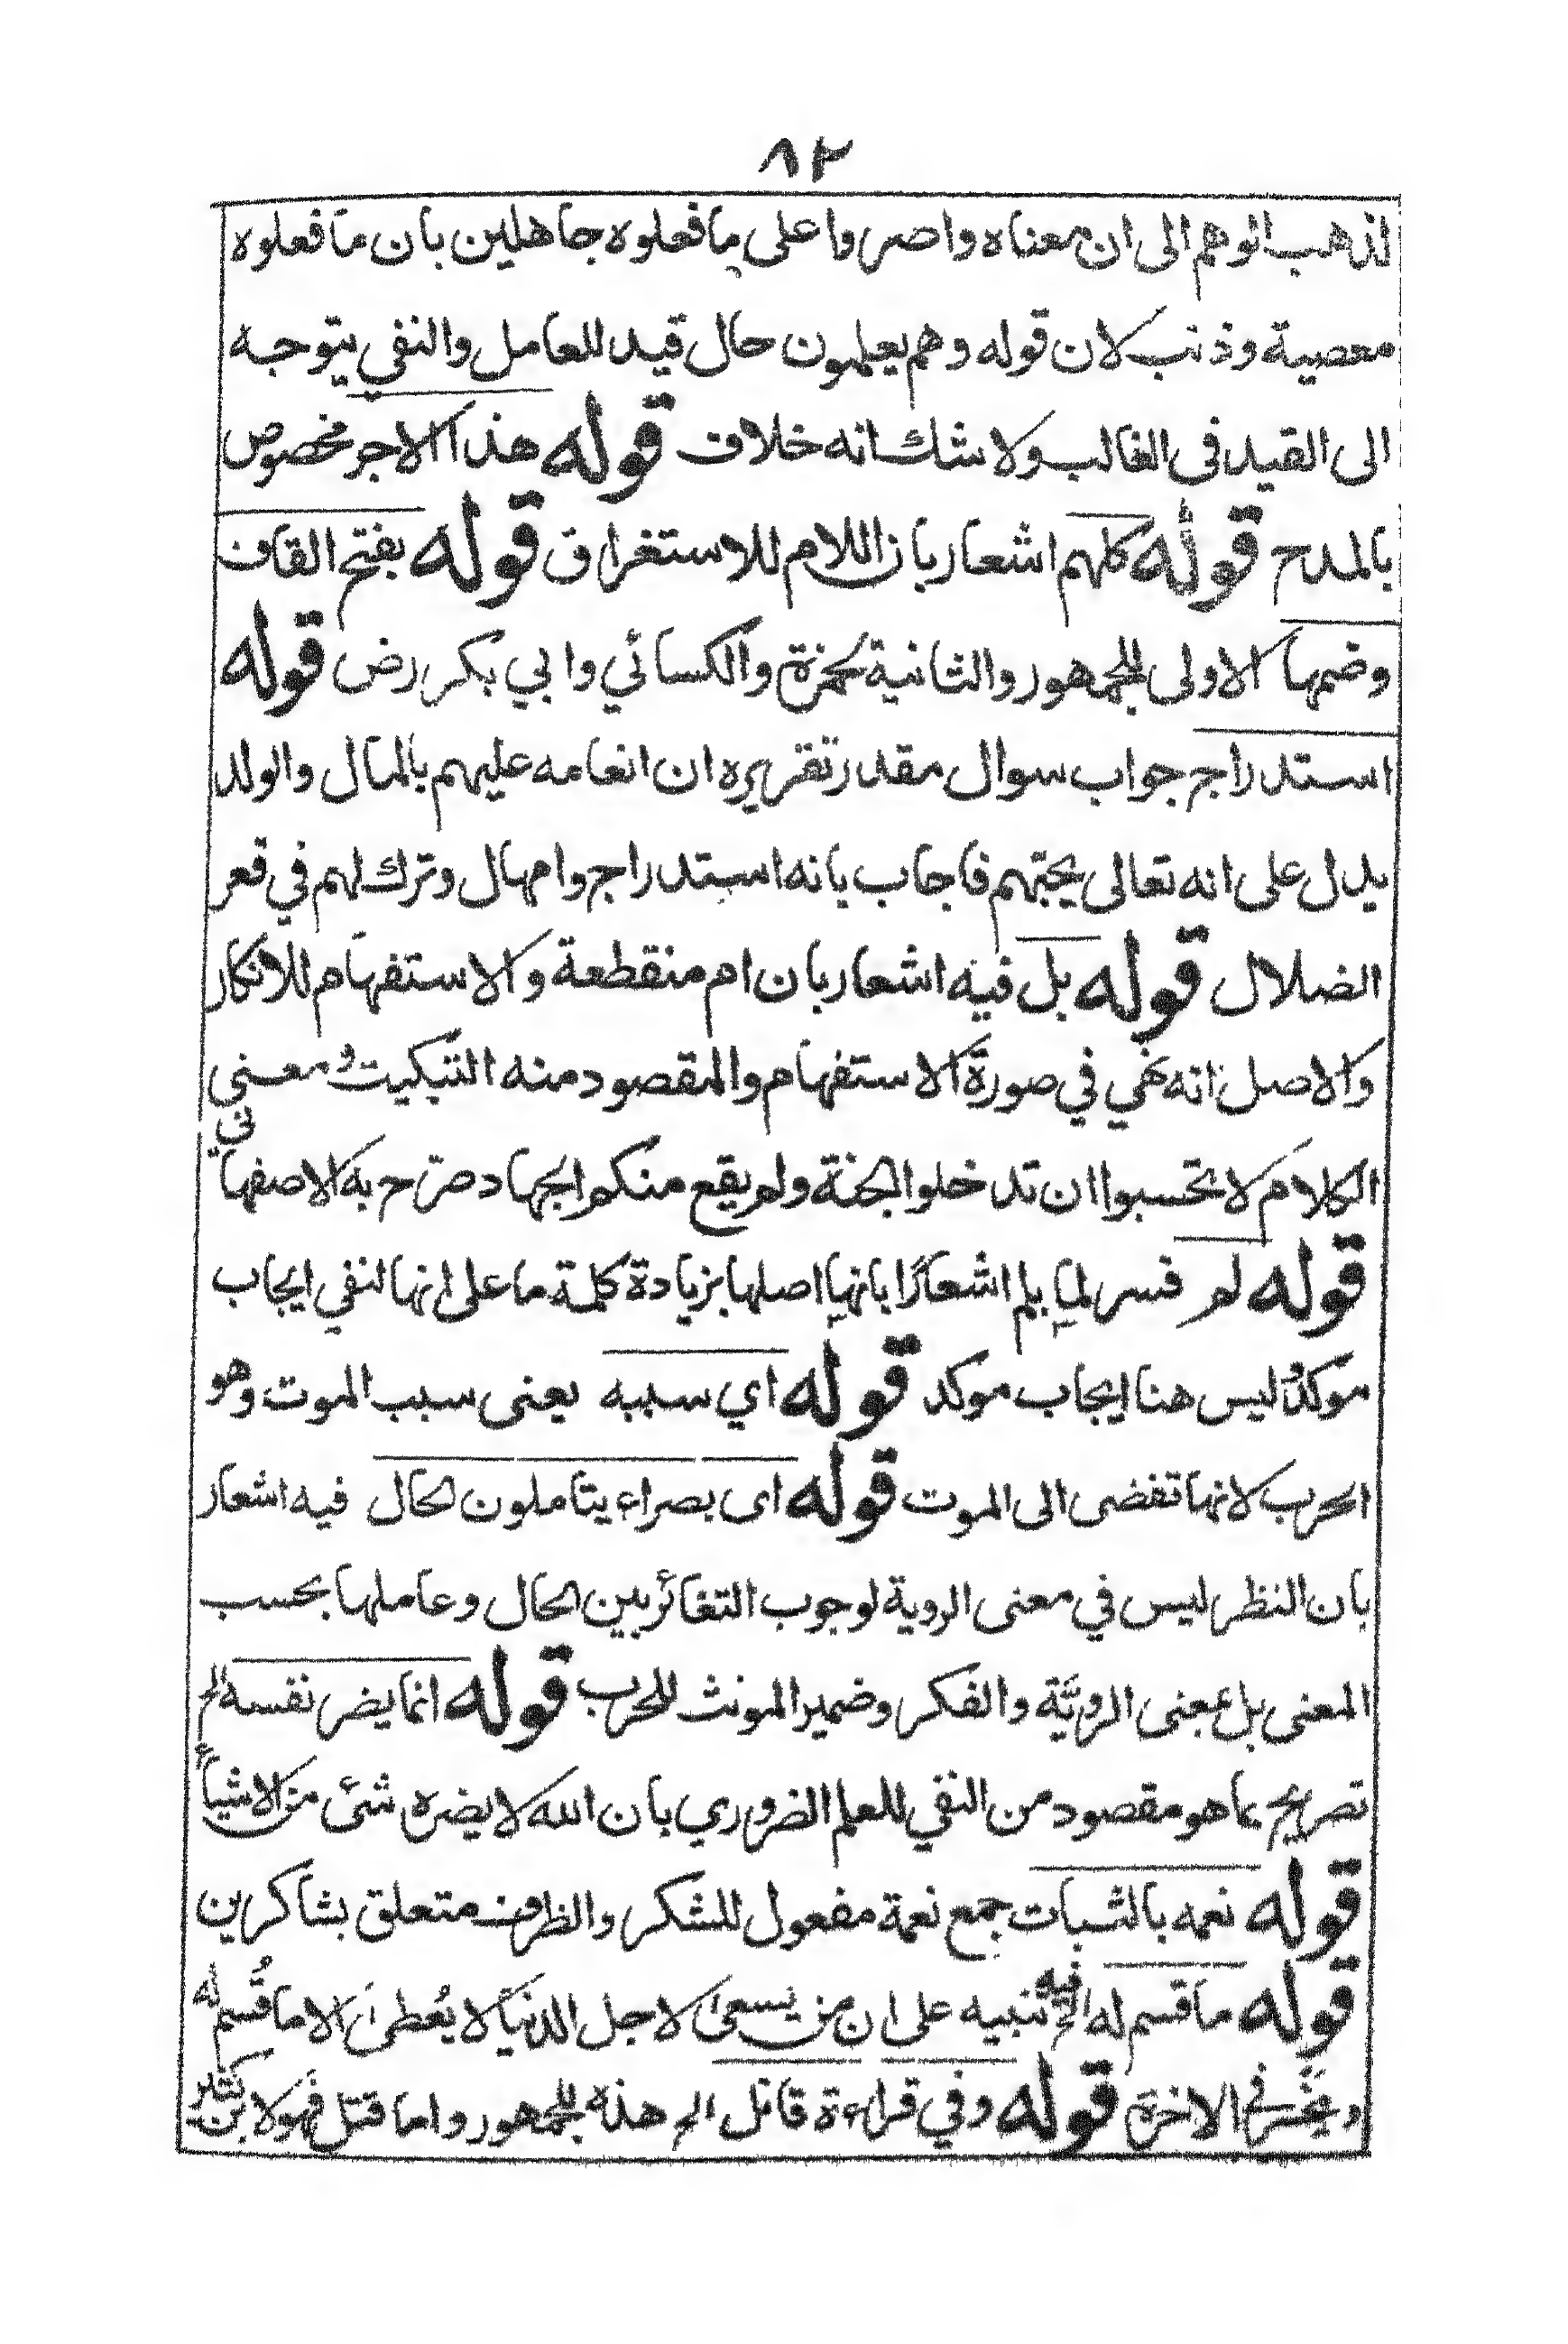 ٨٢
لذهب الوهم الى ان معناه واصروا على ما فعلوه جاهلين بان ما فعلوه
معصية وذنب لان قوله وهم يعلمون حال قيد للعامل والنفي يتوجه
الى القيد فى الغالب ولا شك انه خلاف قوله هذا الاجر مخصوص
بالمدح قوله كلهم اشعار بان اللام للاستغراق قوله بفتح القاف
وضمها الاولى للجمهور والثانية لحمزة والكسائي وابي بكر رض قوله
استدراج جواب سوال مقدر تقريره ان انعامه عليهم بالمال والولد
يدل على انه تعالى يحبهم فاجاب بانه استدراج وامهال وترك لهم في قعر
الضلال قوله بل فيه اشعار بان ام منقطعة والاستفهام للانكار
والاصل انه نهي في صورة الاستفهام والمقصود منه التبكيت ومعنى
الكلام لا تحسبوا ان تدخلوا الجنة ولم يقع منكم الجهاد صرّح به الاصفهاني
قوله لم فسر لما بلم اشعارًا بانها اصلها بزيادة كلمة ما على انها لنفي ايجاب
موكد وليس هنا ايجاب موكد قوله اي سببه يعنى سبب الموت وهو
الحرب لانها تفضى الى الموت قوله اى بصراء يتاملون الحال فيه اشعار
بان النظر ليس في معنى الروية لوجوب التغائر بين الحال وعاملها بحسب
المعنى بل بمعنى الرويَّة والفكر وضمير المونث للحرب قوله انما يضر نفسه الخ
تصريح بما هو مقصود من النفي للعلم الضروري بان الله لا يضره شئ من الاشياء
قوله نعمه بالثبات جمع نعمة مفعول للشكر والظرف متعلق بشاكرين
قوله ما قسم له الخ فيه تنبيه على ان من يسعى لاجل الدنيا لا يُعطى الا ما قُسم له
الاخرة قوله وفي قراءة قاتل الخ هذه للجمهور واما قتل فهو لابن كثير